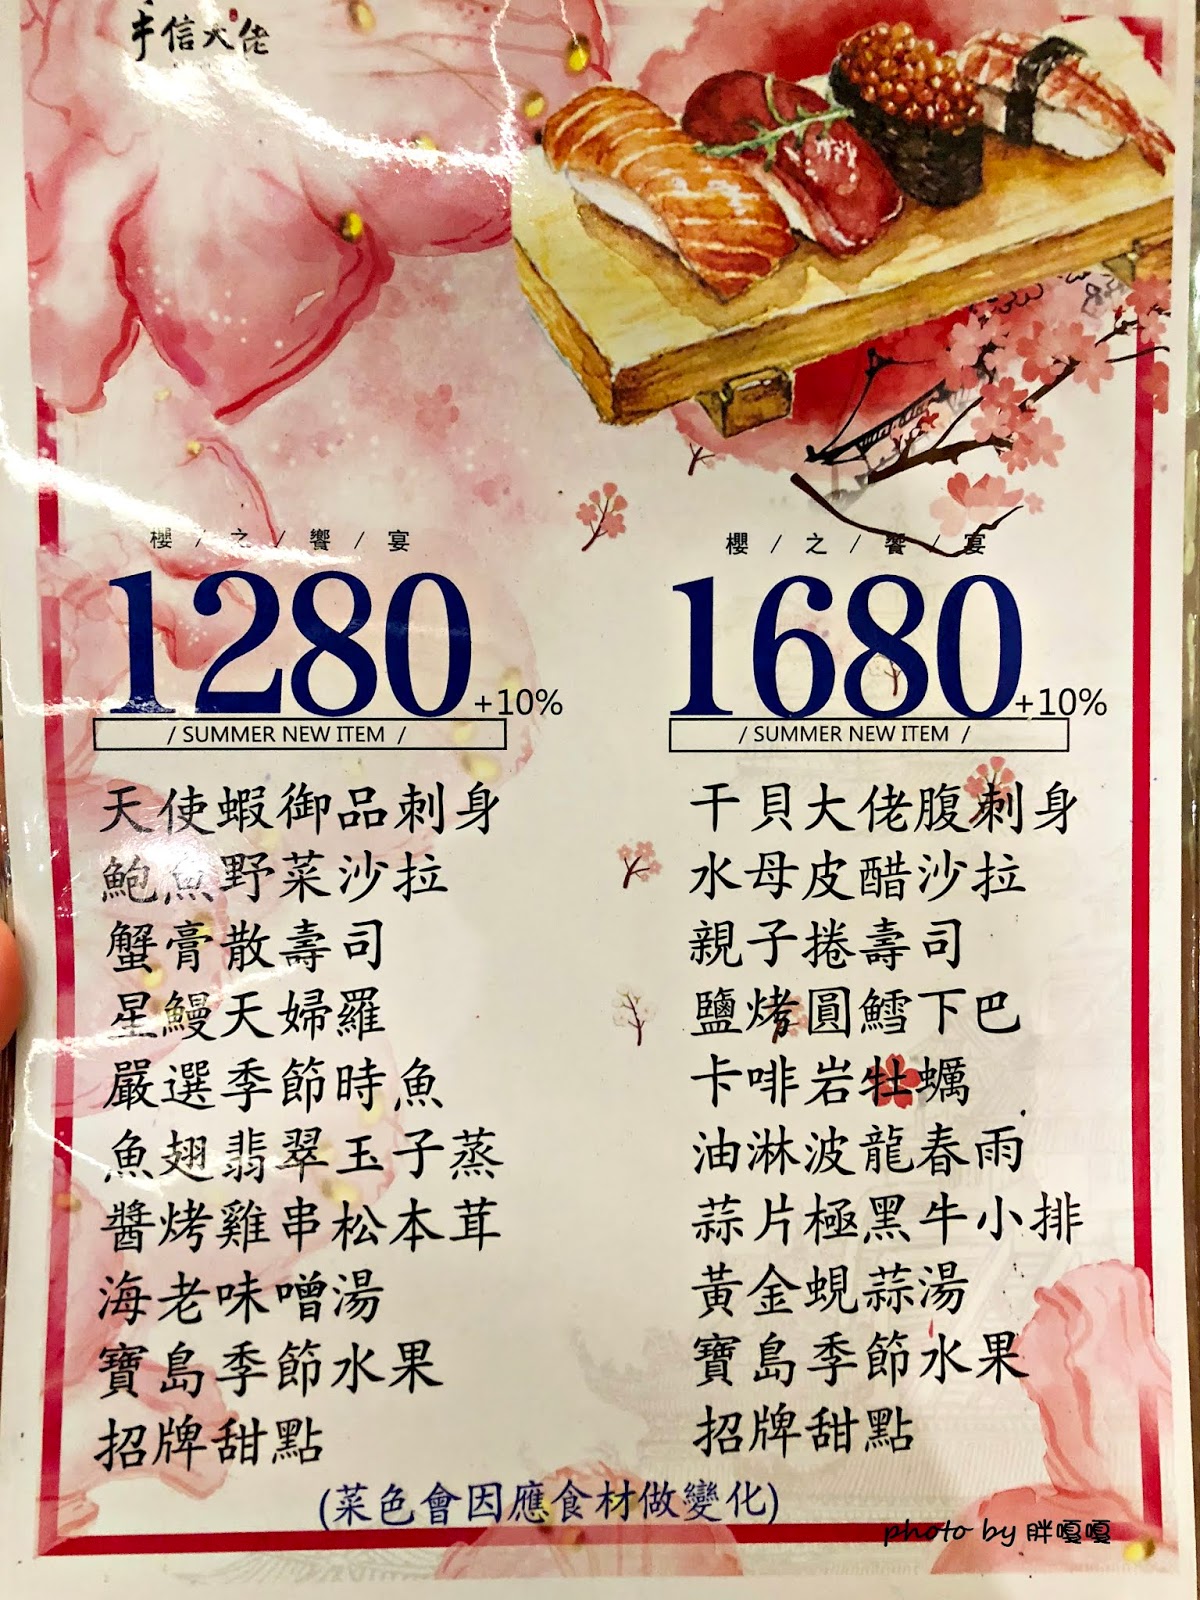 手信大佬
櫻 / 之 / 饗 / 宴
1280 +10%
/ SUMMER NEW ITEM /
天使蝦御品刺身
鮑魚野菜沙拉
蟹膏散壽司
星鰻天婦羅
嚴選季節時魚
魚翅翡翠玉子蒸
醬烤雞串松本茸
海老味噌湯
寶島季節水果
招牌甜點
櫻 / 之 / 饗 / 宴
1680 +10%
/ SUMMER NEW ITEM /
干貝大佬腹刺身
水母皮醋沙拉
親子捲壽司
鹽烤圓鱈下巴
卡啡岩牡蠣
油淋波龍春雨
蒜片極黑牛小排
黃金蜆蒜湯
寶島季節水果
招牌甜點
(菜色會因應食材做變化)
photo by 胖嘎嘎